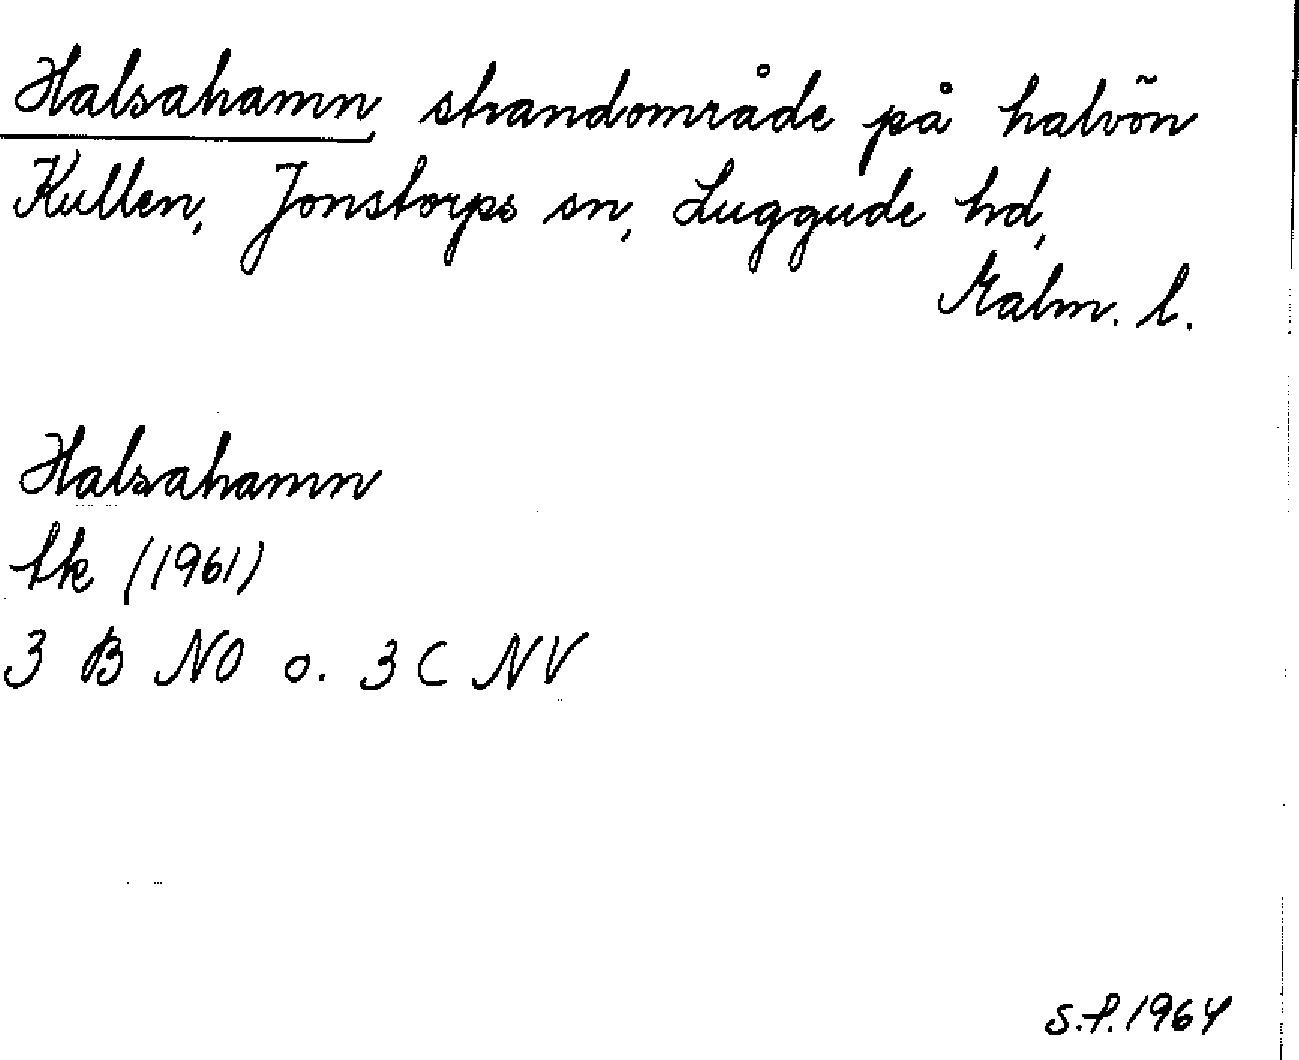 Halsahamn strandområde på halvön
Kullen, Jonstorps sn, Luggude hd,
Malm. l.
Halsahamn
tk (1961)
3 B NO o. 3 C NV
S.F. 1964